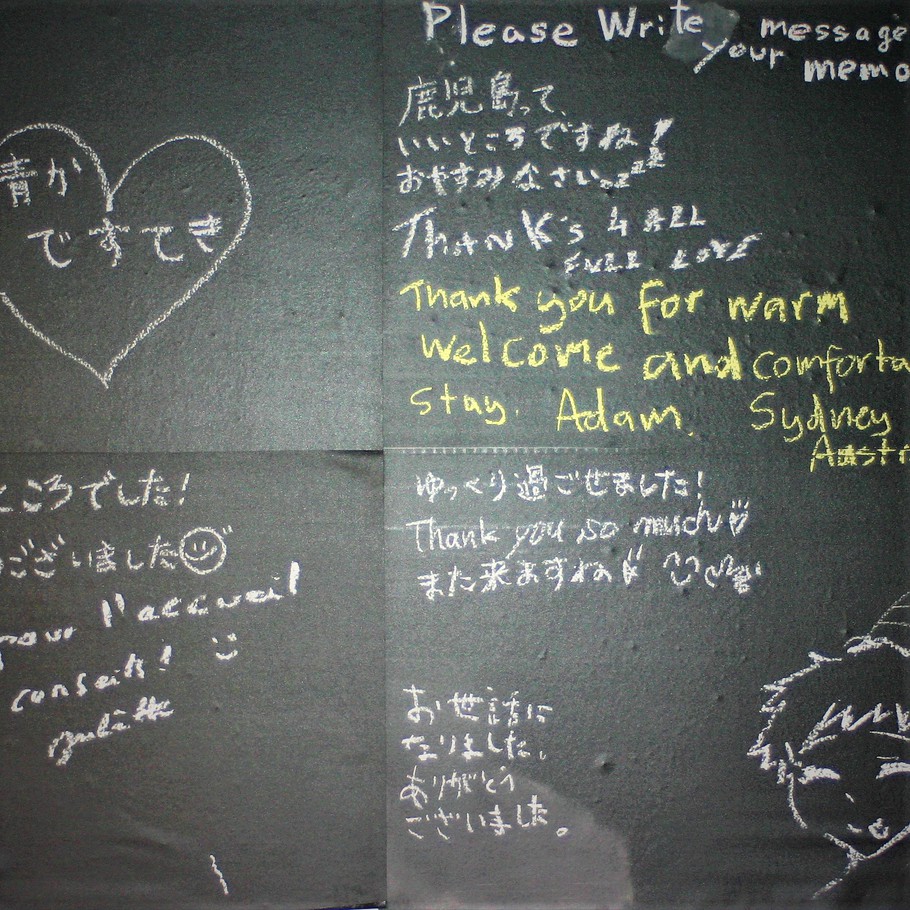 Please Write message
your memo
鹿児島って、
いいところですね!
おやすみなさいzzzz
青か
ですてき
THANK's 4 ALL
FULL LOVE
Thank you for warm
welcome and comforta
stay. Adam. Sydney
Austr
ところでした!
ございました
pour l'accueil
conseils!
ゆっくり過ごせました!
Thank you so much
また来ますね
お世話に
なりました。
ありがとう
ございました。